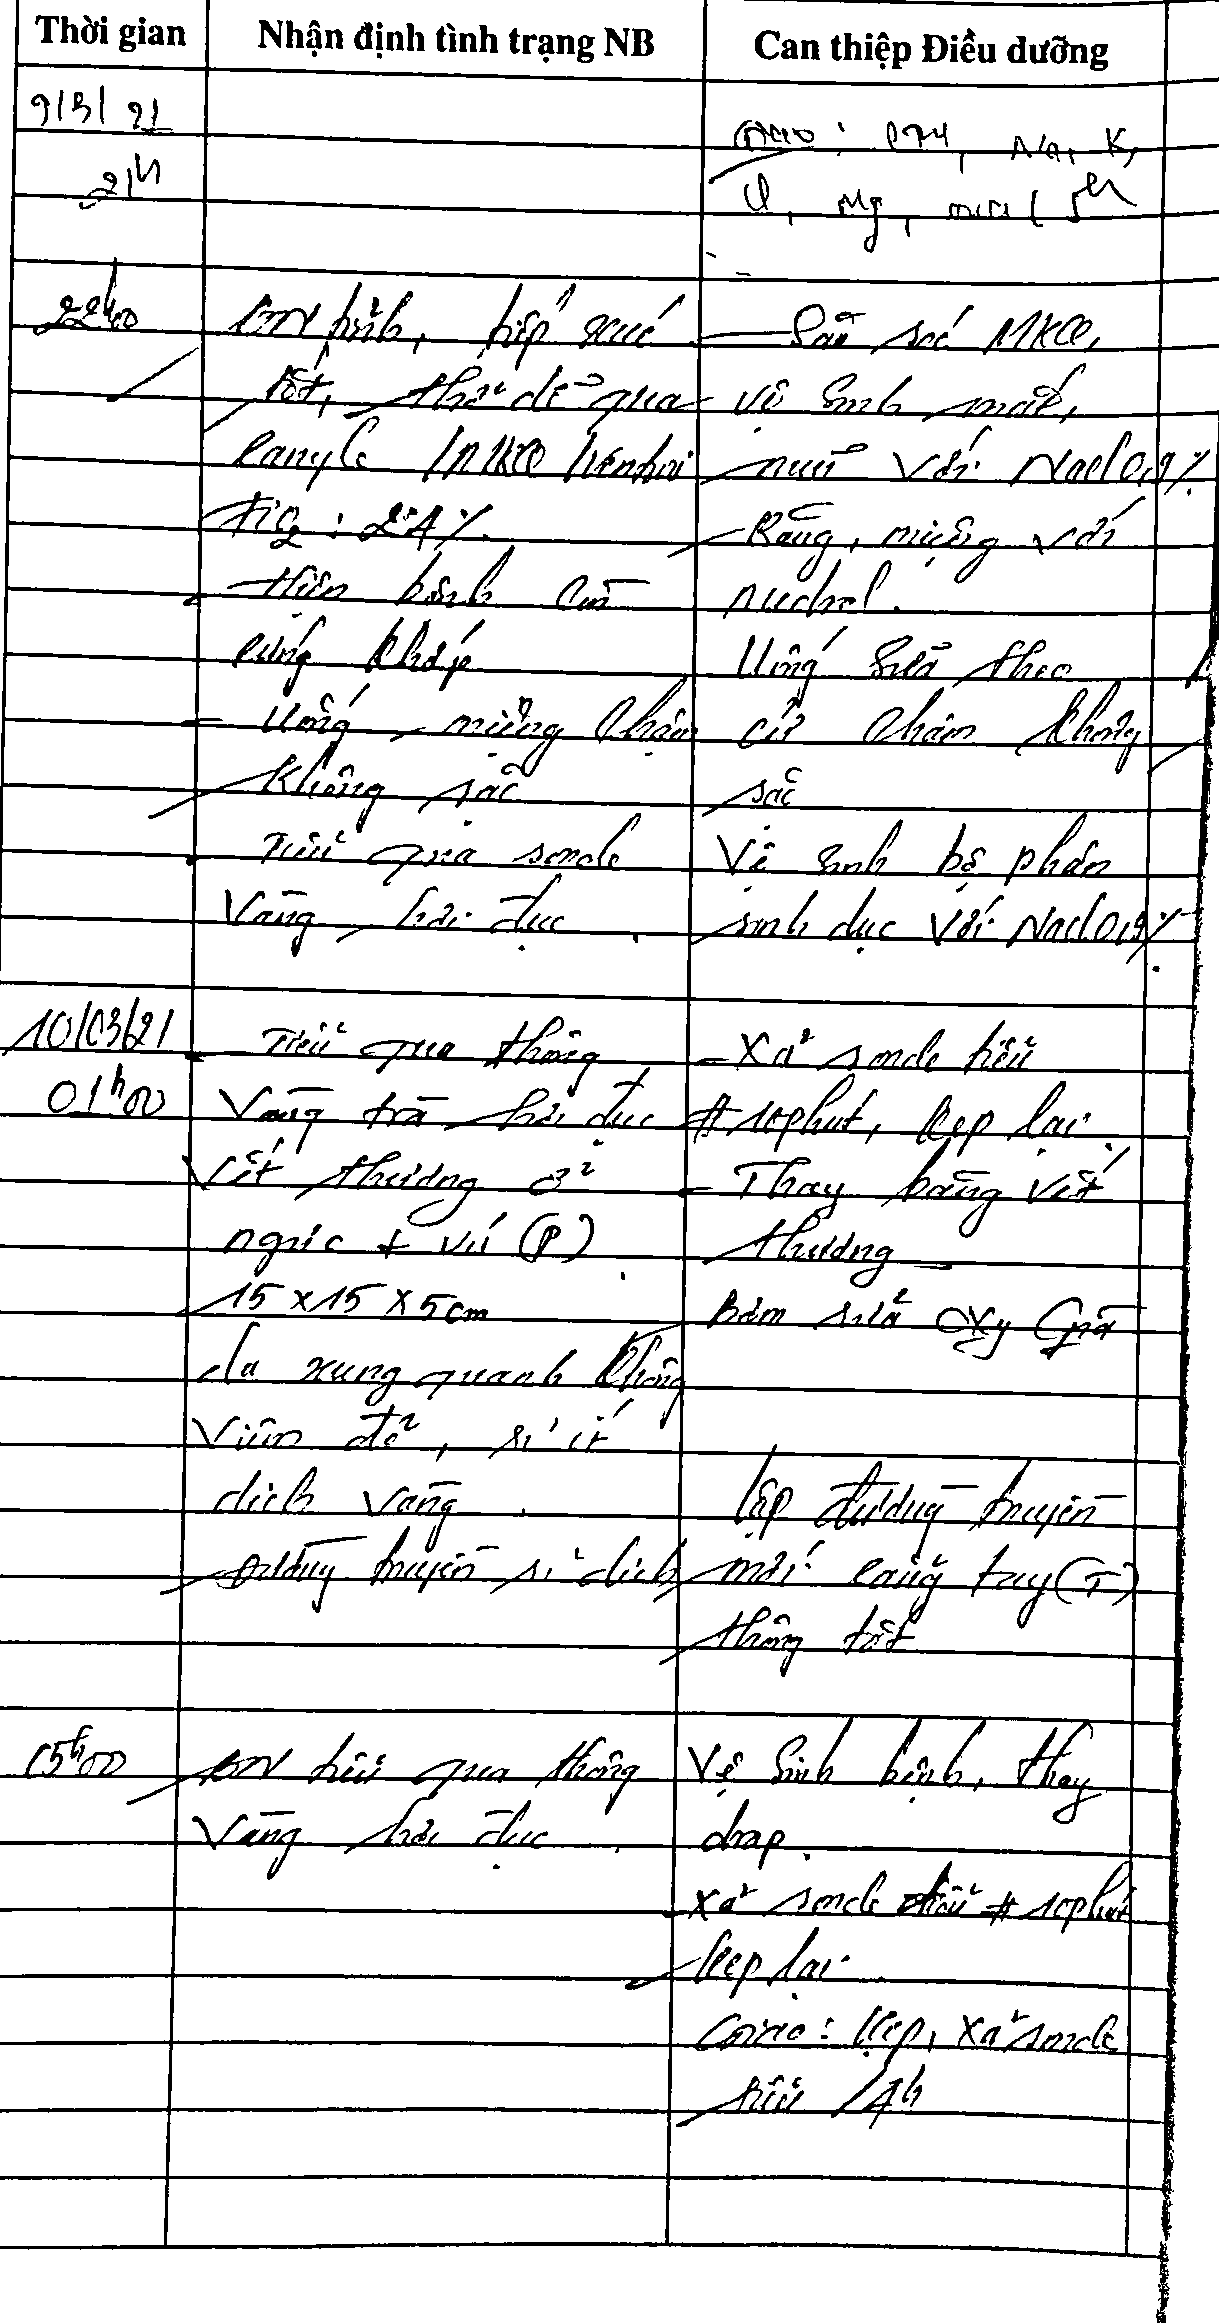 Thời gian
Nhận định tình trạng NB
Can thiệp Điều dưỡng
9/3/21
21h
Giao: , Na, K,
Cl, Mg,
22h00
BN tỉnh, tiếp xúc
tốt, thở dễ qua
canyle MKQ
FiO2: 24%
- Hiện bệnh còn
cứng khớp
- Uống, miệng chậm
không sặc
- Tiểu qua sonde
vàng, hơi đục.
- Săn sóc MKQ,
vệ sinh mắt,
mũi với NaCl 0,9%
- Răng, miệng với
nuchol.
Uống sữa theo
cử chậm không
sặc
Vệ sinh bộ phận
sinh dục với NaCl 0,9%.
10/03/21
01h00
- Tiểu qua thông
vàng trà hơi đục
Vết thương ở
ngực + vú (P).
15 x 15 x 5cm
da xung quanh không
viêm đỏ, rỉ ít
dịch vàng.
Đường truyền rỉ dịch
- Xả sonde tiểu
# 10phút, kẹp lại.
- Thay băng vết
thương
Bơm rửa oxy già
lập đường truyền
mới cẳng tay (T)
thông tốt
05h00
BN tiểu qua thông
vàng hơi đục.
Vệ sinh bệnh, thay
drap.
Xả sonde tiểu # 10phút
kẹp lại.
Giao: kẹp, xả sonde
tiểu /4h